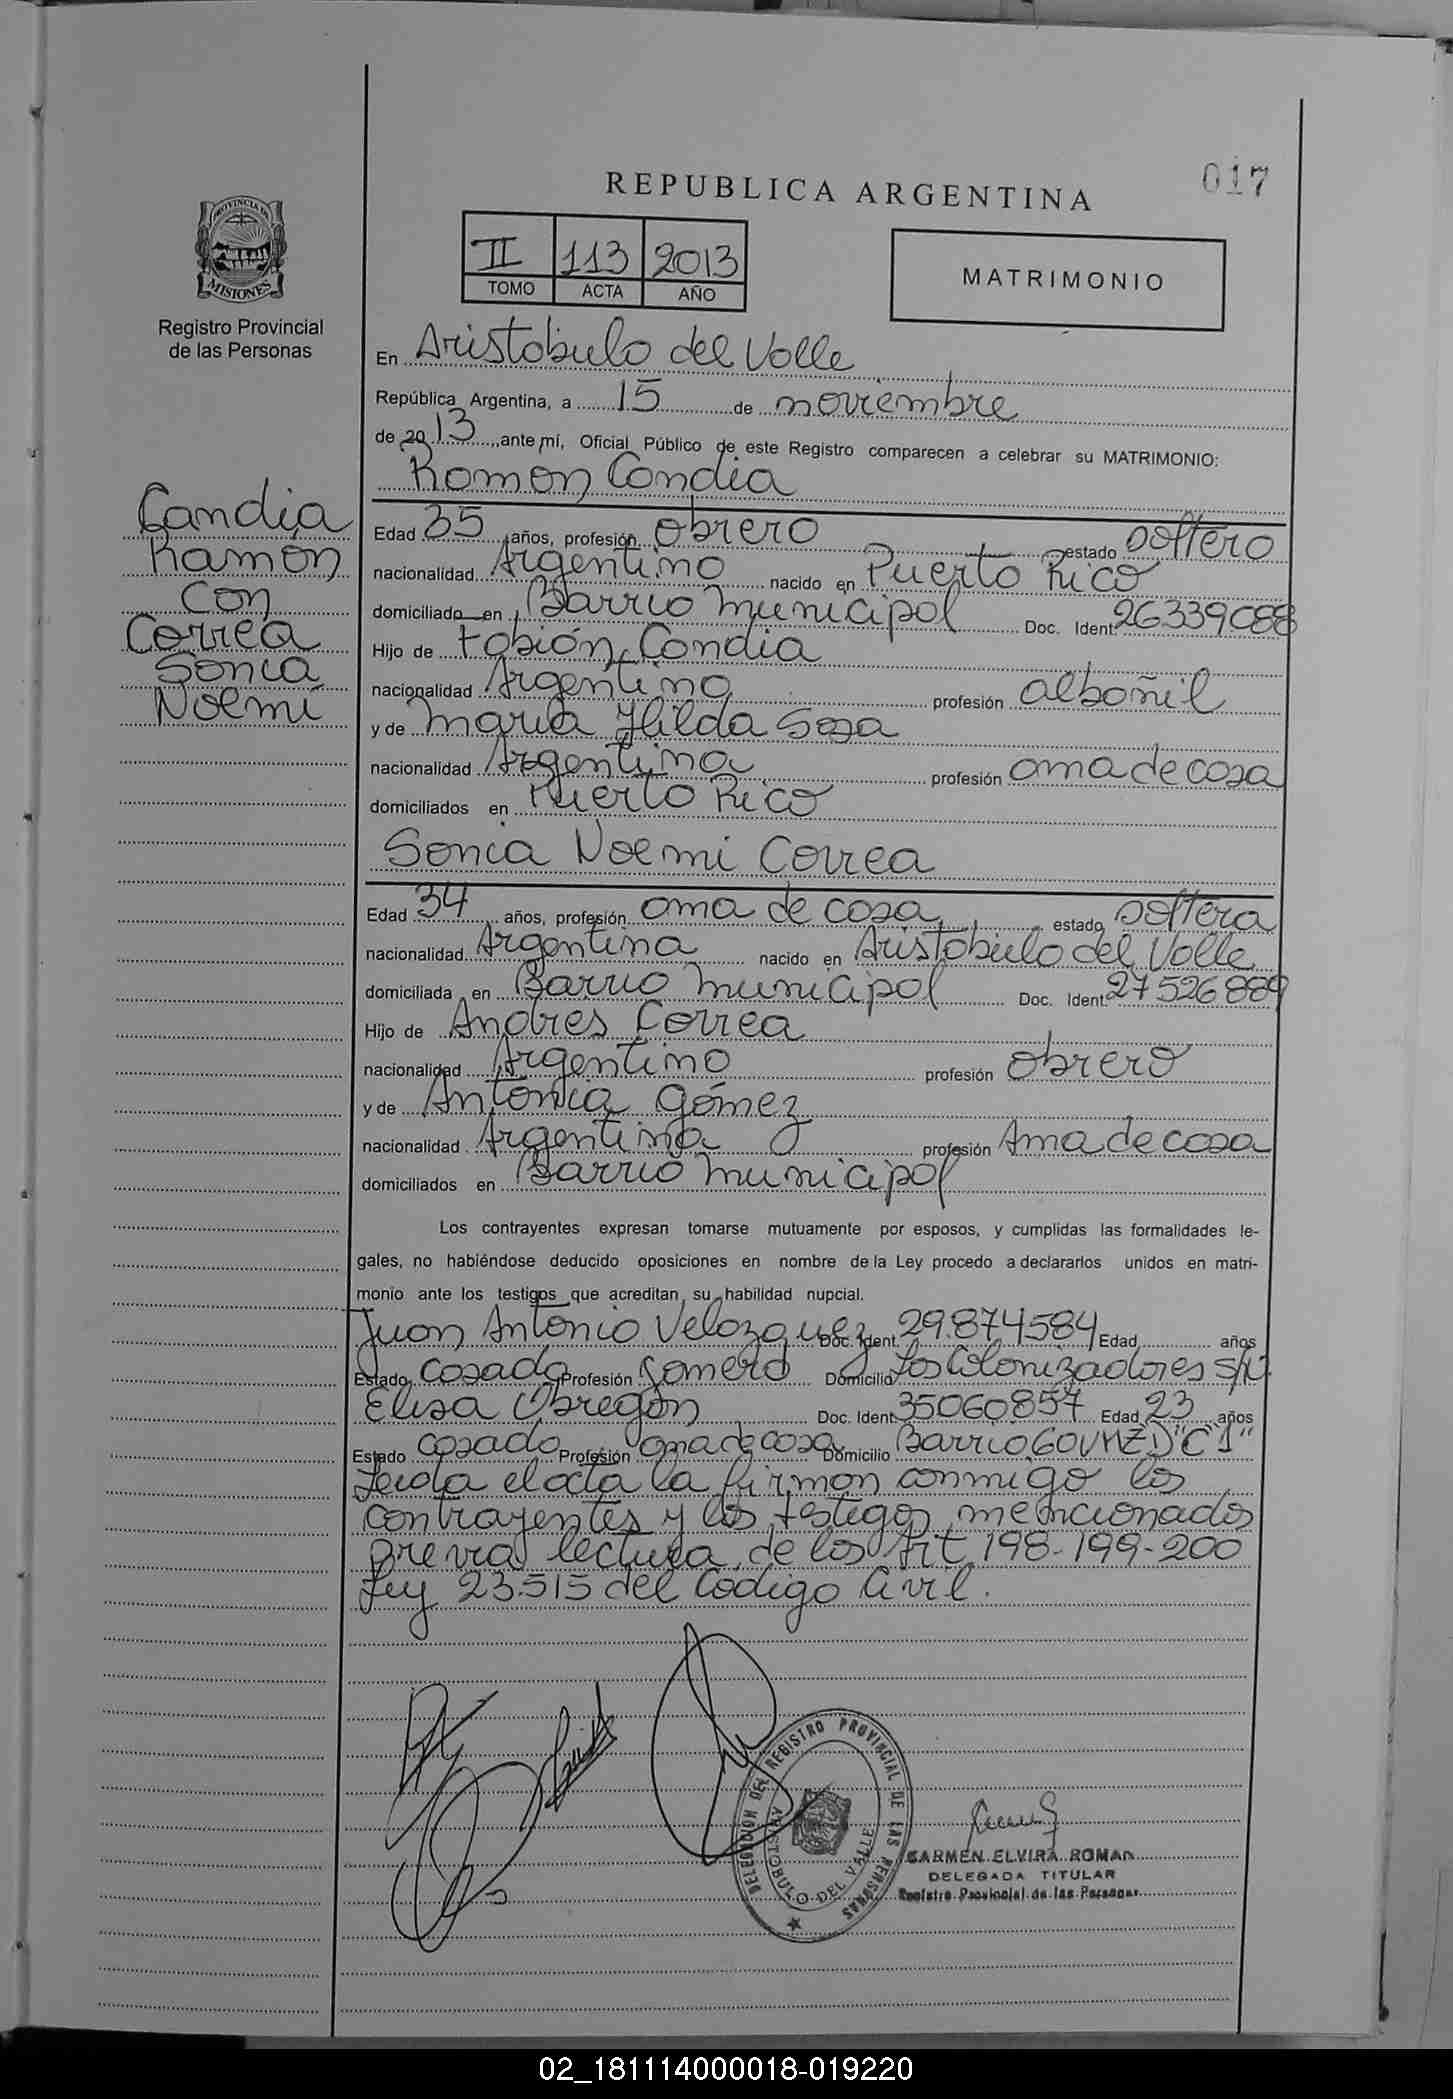 017
REPUBLICA ARGENTINA
PROVINCIA DE
MISIONES
Registro Provincial
de las Personas
II 113 2013
TOMO ACTA AÑO
MATRIMONIO
En Aristobulo del Valle
República Argentina, a 15 de noviembre
de 2013 ante mí, Oficial Público de este Registro comparecen a celebrar su MATRIMONIO:
Ramon Candia
Candia
Ramón
Con
Correa
Sonia
Noemi
Edad 35 años, profesión obrero estado soltero
nacionalidad Argentino nacido en Puerto Rico
domiciliado en Barrio Municipal Doc. Ident. 26339088
Hijo de Fabián Candia
nacionalidad Argentino profesión albañil
y de María Hilda Sosa
nacionalidad Argentina profesión ama de casa
domiciliados en Puerto Rico
Sonia Noemi Correa
Edad 34 años, profesión ama de casa estado soltera
nacionalidad Argentina nacido en Aristóbulo del Valle
domiciliada en Barrio Municipal Doc. Ident. 27526889
Hijo de Andres Correa
nacionalidad Argentino profesión obrero
y de Antonia Gómez
nacionalidad Argentina profesión Ama de casa
domiciliados en Barrio Municipal
Los contrayentes expresan tomarse mutuamente por esposos, y cumplidas las formalidades le-
gales, no habiéndose deducido oposiciones en nombre de la Ley procedo a declararlos unidos en matri-
monio ante los testigos que acreditan su habilidad nupcial.
Juan Antonio Velazquez Doc. Ident. 29.874584 Edad años
Estado casado Profesión Gomero Domicilio Los Colonizadores S/N
Elisa Obregón Doc. Ident. 35060857 Edad 23 años
Estado casado Profesión ama de casa Domicilio Barrio 60V MZ D "C 1"
Leida el acta la firman conmigo los
contrayentes y los testigos mencionados
previa lectura de los Art. 198-199-200
Ley 23.515 del Código Civil.
DELEGACION DEL REGISTRO PROVINCIAL DE LAS PERSONAS
ARISTOBULO DEL VALLE
CARMEN ELVIRA ROMAN
DELEGADA TITULAR
Registro Provincial de las Personas
02_181114000018-019220